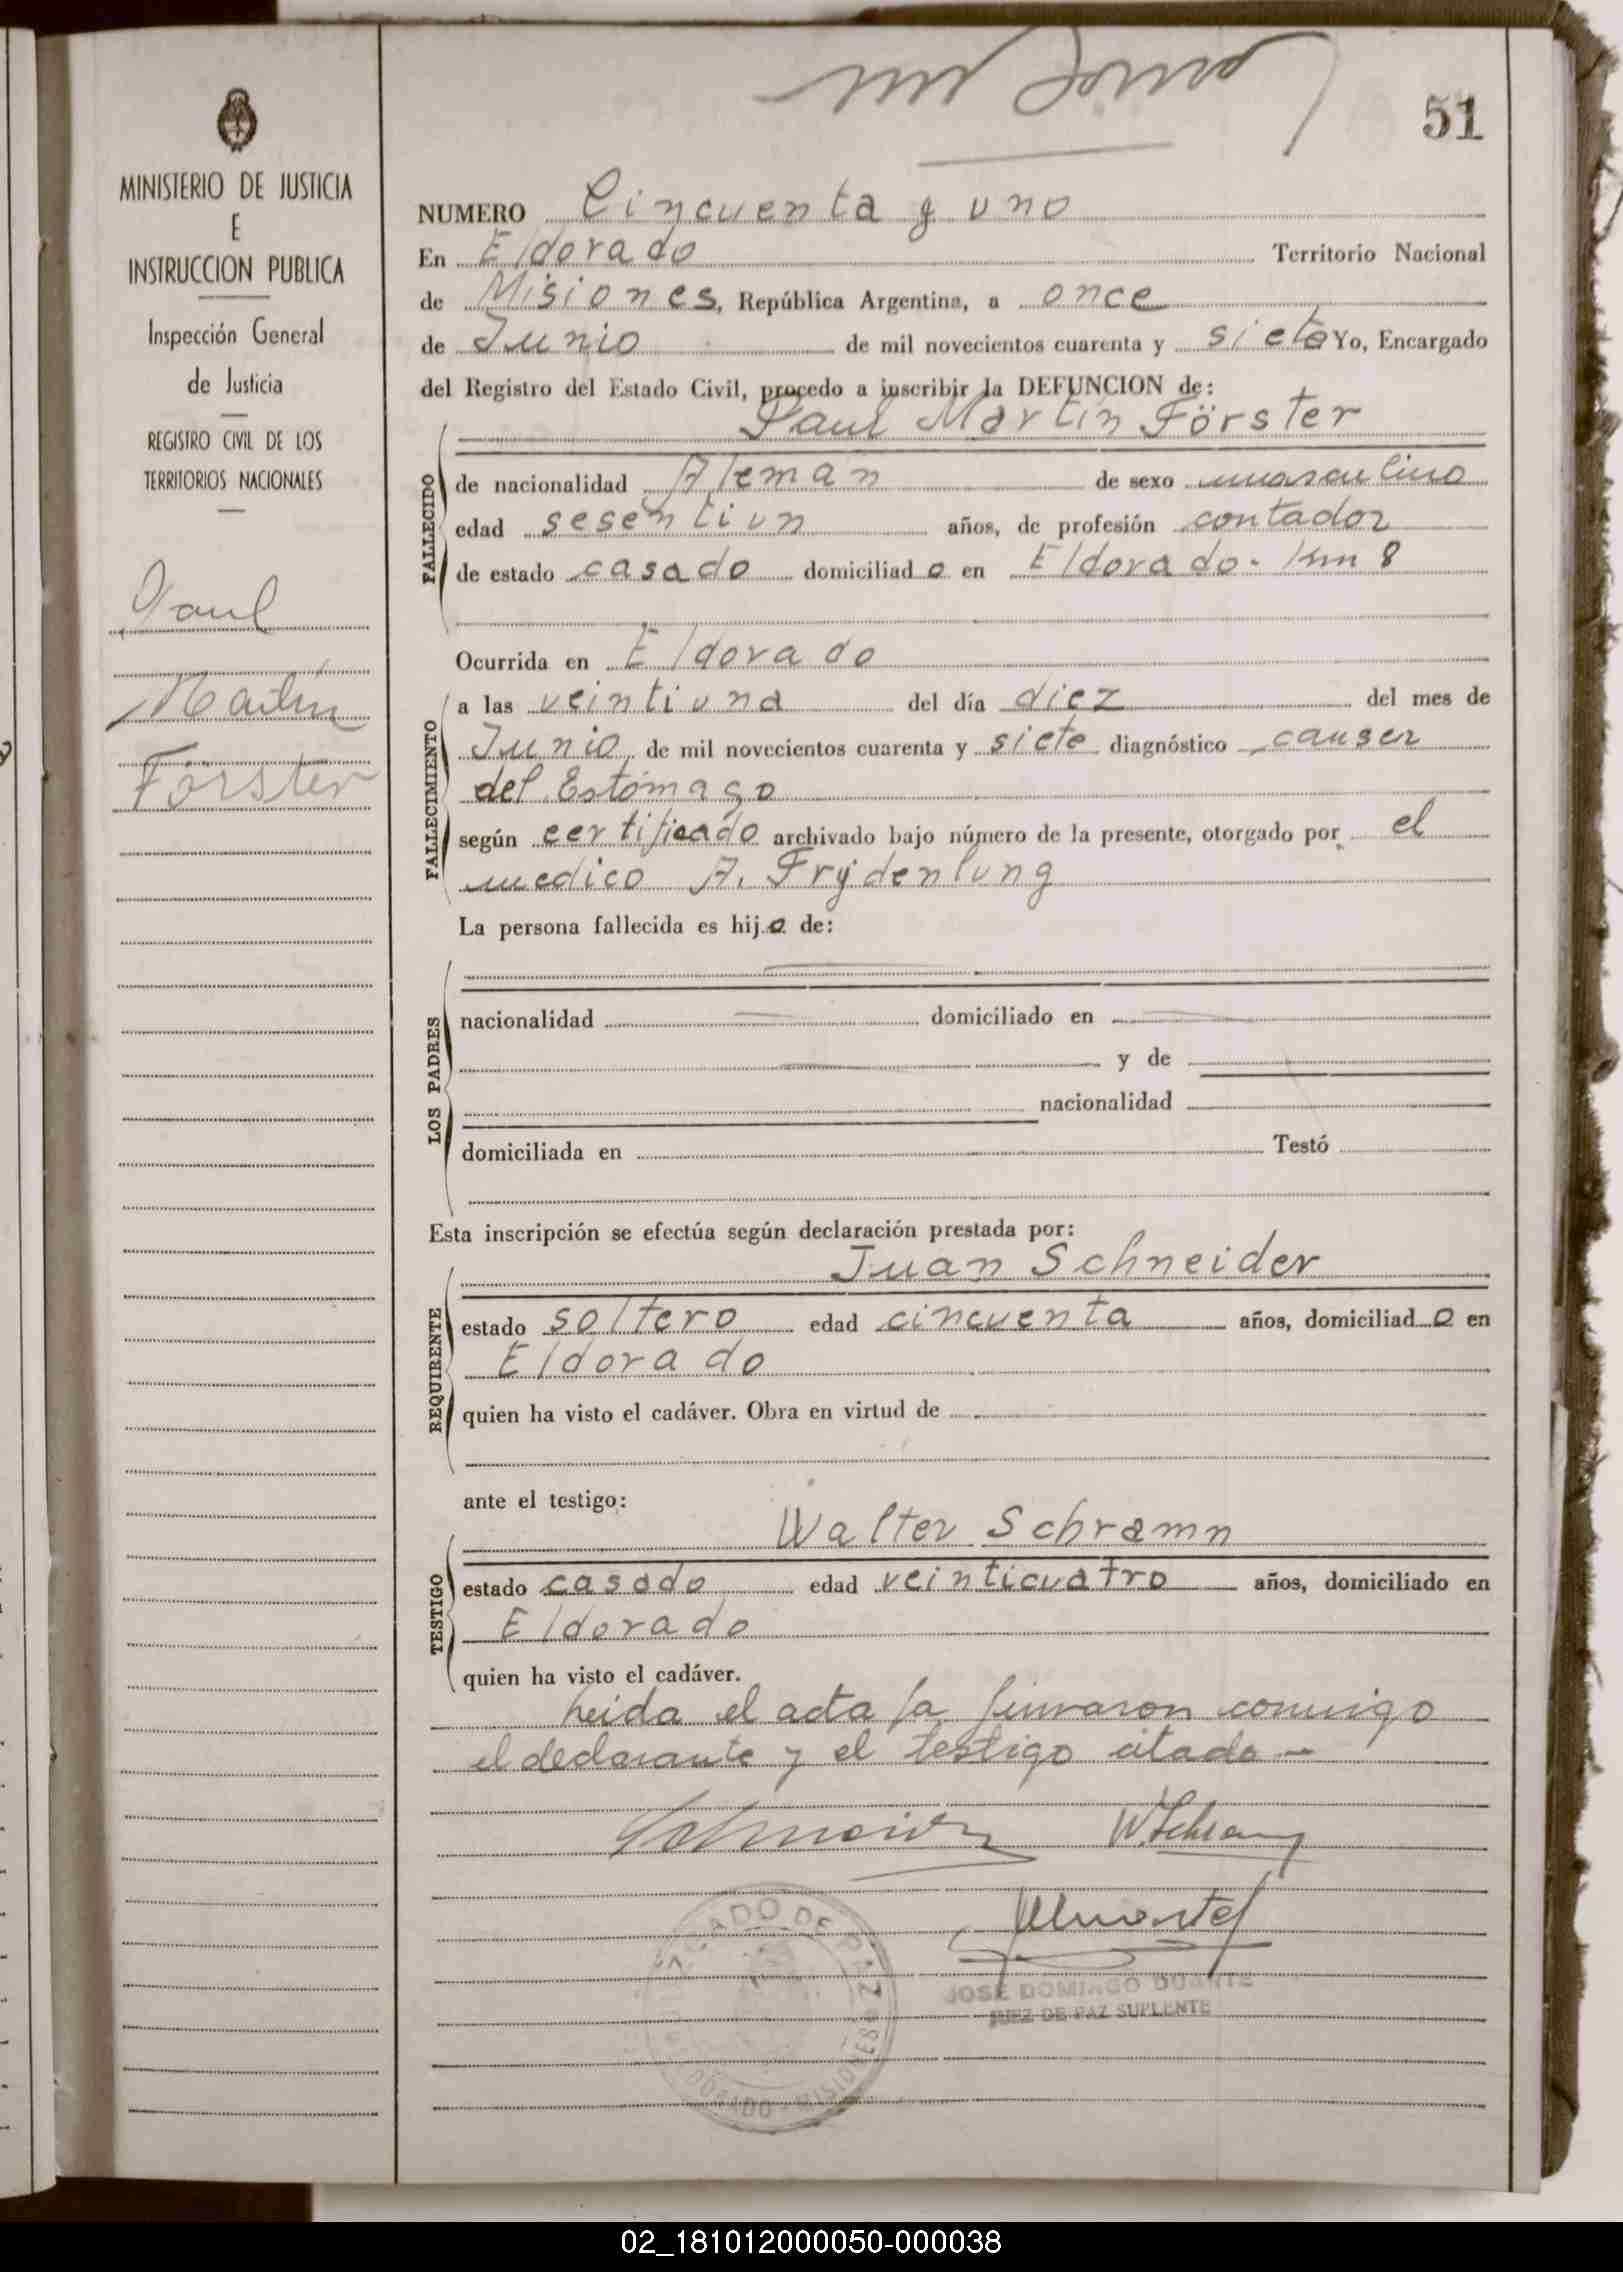 51
MINISTERIO DE JUSTICIA
E
INSTRUCCION PUBLICA
Inspección General
de Justicia
REGISTRO CIVIL DE LOS
TERRITORIOS NACIONALES
Paul
Martin
Förster
NUMERO Cincuenta y uno
En Eldorado Territorio Nacional
de Misiones, República Argentina, a once
de Junio de mil novecientos cuarenta y siete Yo, Encargado
del Registro del Estado Civil, procedo a inscribir la DEFUNCION de:
Paul Martin Förster
FALLECIDO
de nacionalidad Aleman de sexo masculino
edad sesentiun años, de profesión contador
de estado casado domiciliado en Eldorado. Km 8
Ocurrida en Eldorado
FALLECIMIENTO
a las veintiuna del día diez del mes de
Junio de mil novecientos cuarenta y siete diagnóstico canser
del Estómago
según certificado archivado bajo número de la presente, otorgado por el
medico A. Frydenlung
La persona fallecida es hijo de:
LOS PADRES
nacionalidad domiciliado en
y de
nacionalidad
domiciliada en Testó
Esta inscripción se efectúa según declaración prestada por:
Juan Schneider
REQUIRENTE
estado soltero edad cincuenta años, domiciliado en
Eldorado
quien ha visto el cadáver. Obra en virtud de
ante el testigo:
Walter Schramn
TESTIGO
estado casado edad veinticuatro años, domiciliado en
Eldorado
quien ha visto el cadáver.
Leida el acta la firmaron conmigo
el declarante y el testigo citado -
Schneider W. Schramm
JUZGADO DE PAZ
ELDORADO - MISIONES
JOSE DOMINGO DUARTE
JUEZ DE PAZ SUPLENTE
02_181012000050-000038